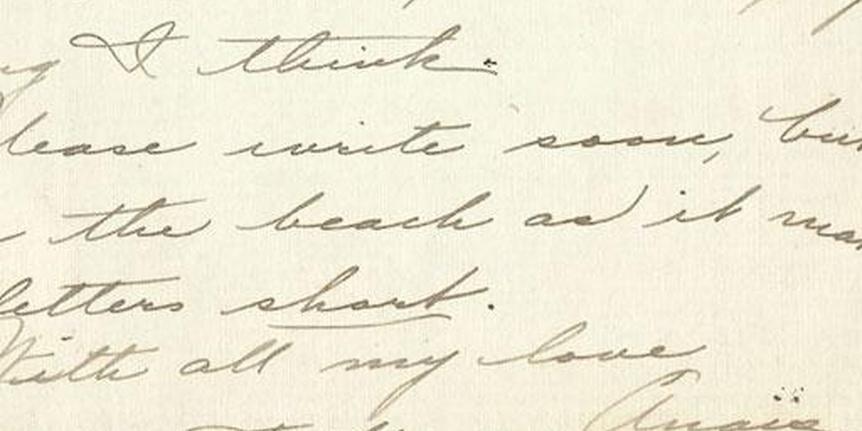 I think.
lease write soon, but
the beach as it ma
letters short.
With all my love
Anaïs